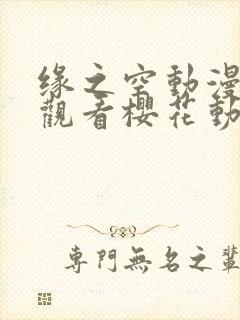 緣之空動漫
觀看櫻花動
專門無名之輩